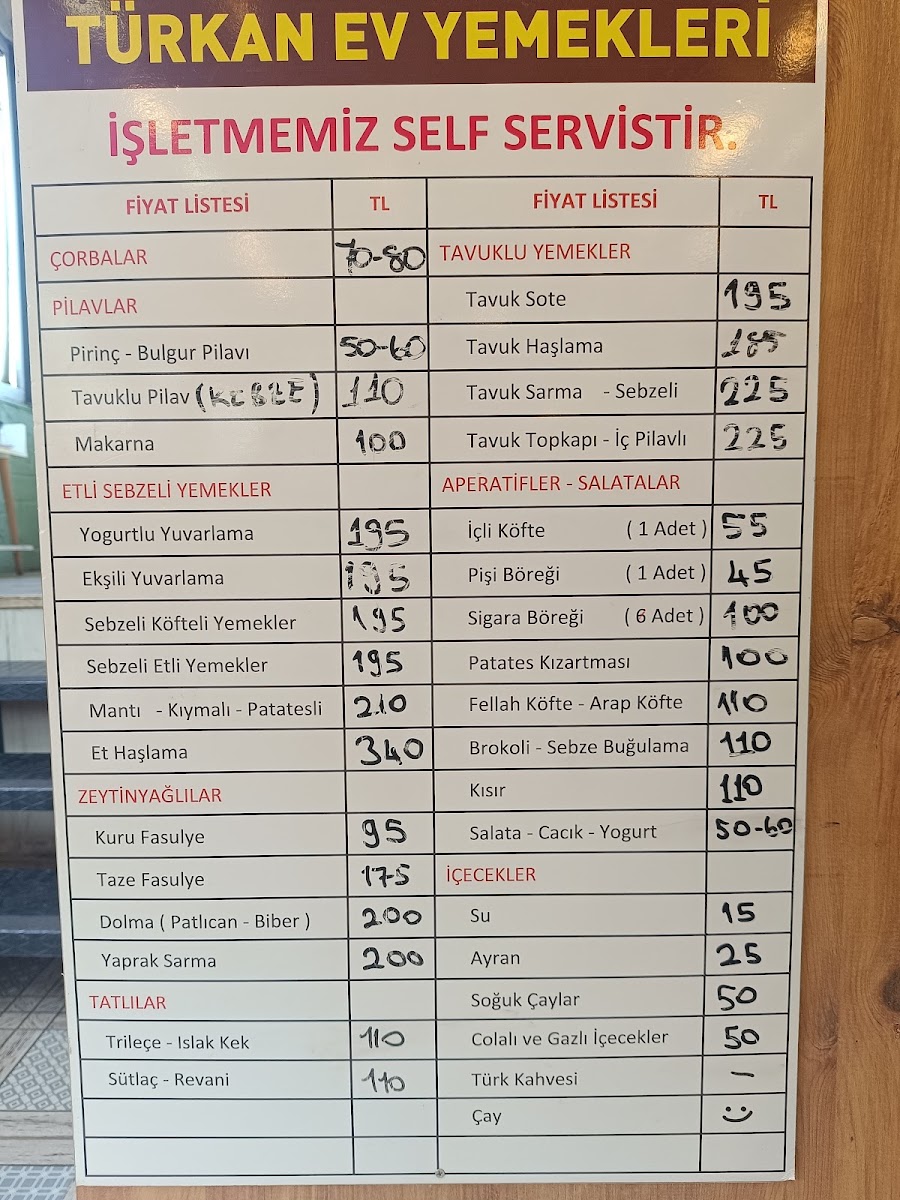 TÜRKAN EV YEMEKLERİ
İŞLETMEMİZ SELF SERVİSTİR.
FİYAT LİSTESİ TL
ÇORBALAR 70-80
PİLAVLAR
Pirinç - Bulgur Pilavı 50-60
Tavuklu Pilav (KEBZE) 110
Makarna 100
ETLİ SEBZELİ YEMEKLER
Yogurtlu Yuvarlama 195
Ekşili Yuvarlama 195
Sebzeli Köfteli Yemekler 195
Sebzeli Etli Yemekler 195
Mantı - Kıymalı - Patatesli 210
Et Haşlama 340
ZEYTİNYAĞLILAR
Kuru Fasulye 95
Taze Fasulye 175
Dolma ( Patlıcan - Biber ) 200
Yaprak Sarma 200
TATLILAR
Trileçe - Islak Kek 110
Sütlaç - Revani 110
FİYAT LİSTESİ TL
TAVUKLU YEMEKLER
Tavuk Sote 195
Tavuk Haşlama 185
Tavuk Sarma - Sebzeli 225
Tavuk Topkapı - İç Pilavlı 225
APERATİFLER - SALATALAR
İçli Köfte ( 1 Adet ) 55
Pişi Böreği ( 1 Adet ) 45
Sigara Böreği ( 6 Adet ) 100
Patates Kızartması 100
Fellah Köfte - Arap Köfte 110
Brokoli - Sebze Buğulama 110
Kısır 110
Salata - Cacık - Yogurt 50-60
İÇECEKLER
Su 15
Ayran 25
Soğuk Çaylar 50
Colalı ve Gazlı İçecekler 50
Türk Kahvesi -
Çay :)